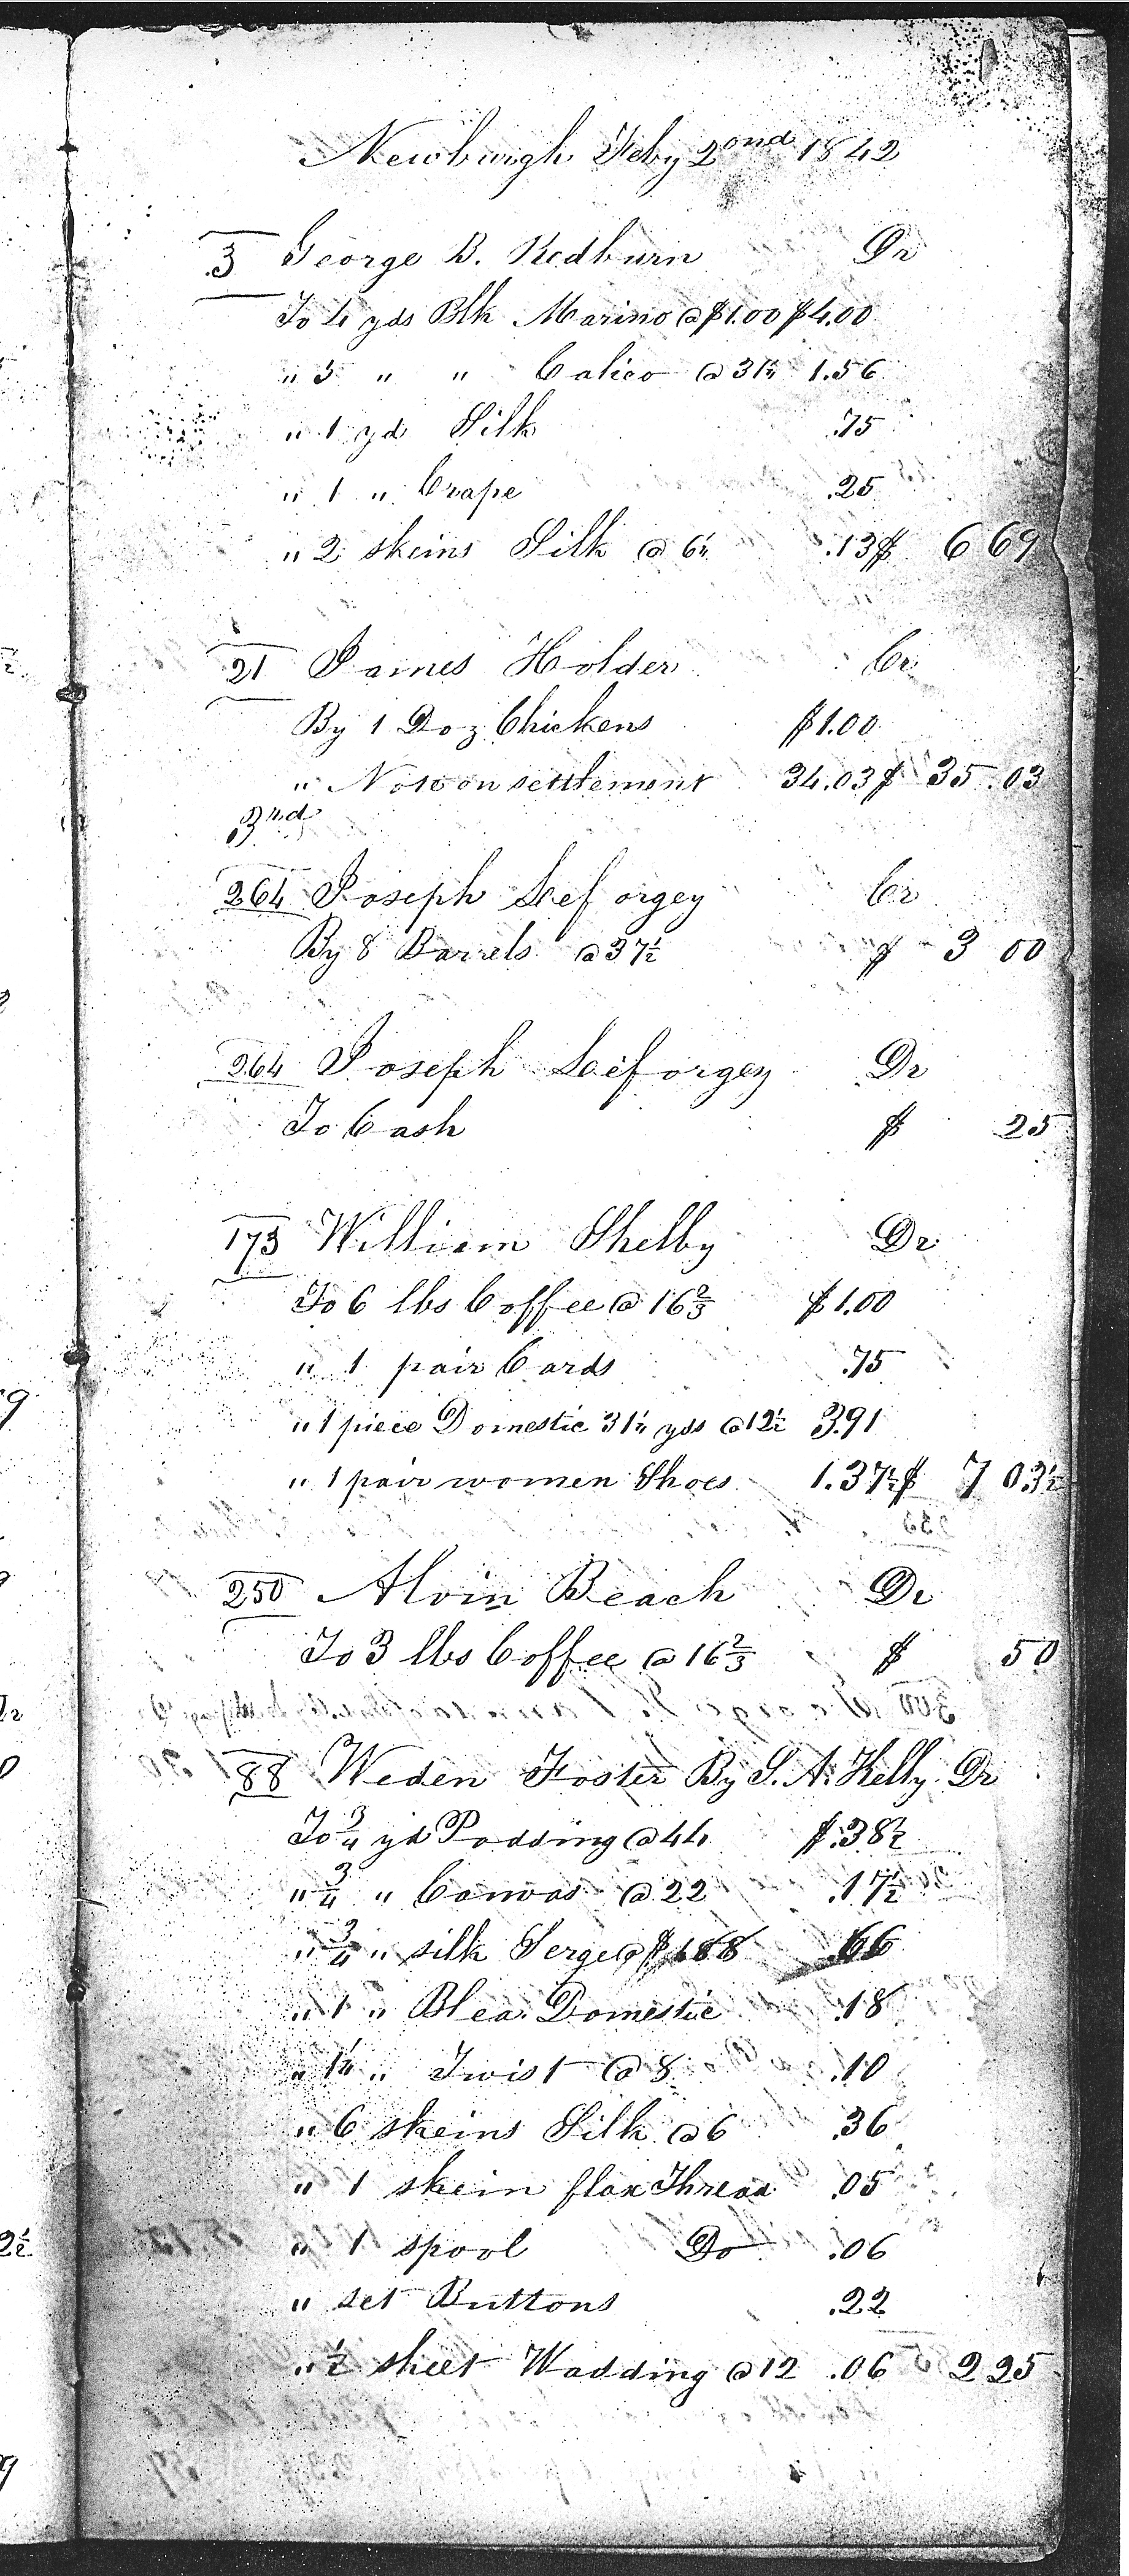 Newburgh Feby 2ond 1842
3 George B. Redburn Dr
To 4 yds Blk Marino @ $1.00 $4.00
" 5 " " Calico @ 31¼ 1.56
" 1 yd Silk .75
" 1 " Crape .25
" 2 skeins Silk @ 6¼ .13 $ 6 69
21 James Holder Cr
By 1 Doz Chickens $1.00
" Note on settlement 34.03 $ 35.03
3rd
264 Joseph Seeforgey Cr
By 8 Barrels @ 37½ $ 3 00
264 Joseph Seeforgey Dr
To Cash $ 25
173 William Shelby Dr
To 6 lbs Coffee @ 16⅔ $1.00
" 1 pair Cards .75
" 1 piece Domestic 31¼ yds @ 12½ 3.91
" 1 pair women Shoes 1.37½ $ 7 03½
250 Alvin Beach Dr
To 3 lbs Coffee @ 16⅔ $ 50
88 Weden Foster By S. A. Kelly Dr
To ¾ yd Padding @ 44 $.38½
" ¾ " Canvas @ 22 .17½
" ¾ " silk Serge @ $ .88 .66
" 1 " Blea. Domestic .18
" 1¼ " Twist @ 8 .10
" 6 skeins Silk @ 6 .36
" 1 skein flax Thread .05
" 1 spool Do .06
" set Buttons .22
" ½ sheet Wadding @ 12 .06 2 25